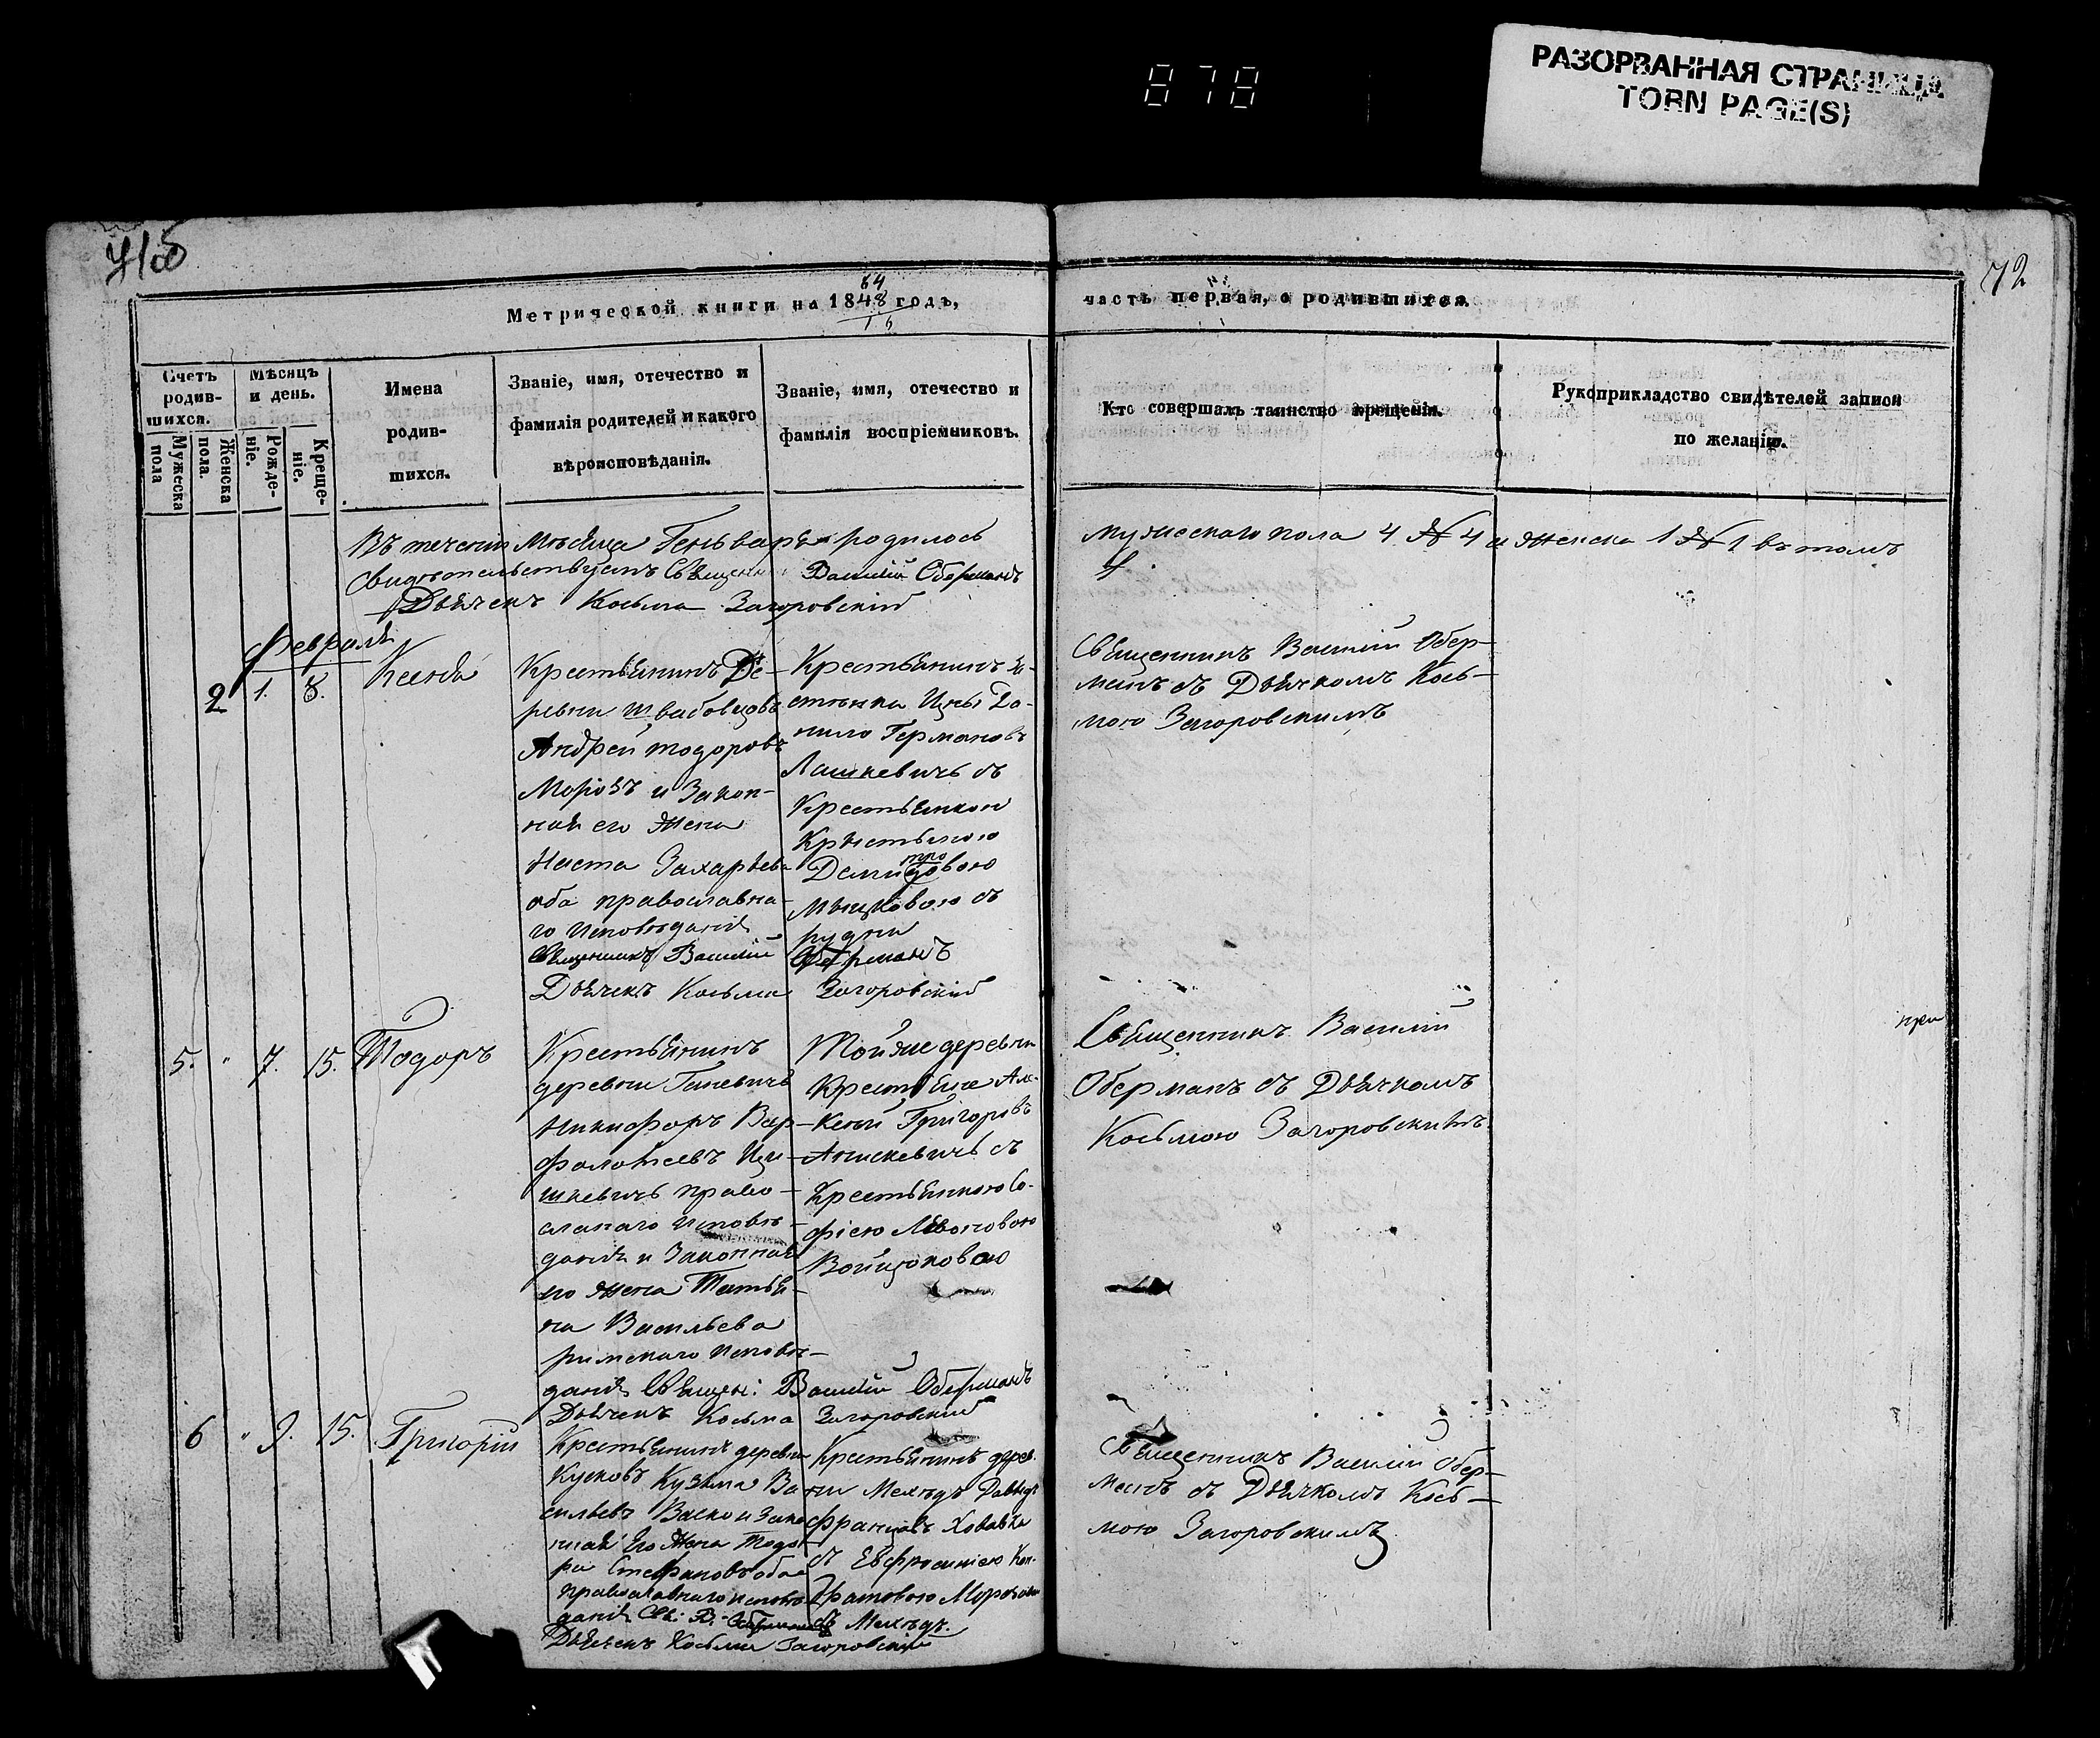 878
РАЗОРВАННАЯ СТРАНИЦА
TORN PAGE(S)
71об
72
64
Метрической книги на 1848 годъ,
часть первая, о родившихся.
Счетъ родив-шихся.
Мужеска пола
Женска пола.
Мѣсяцъ и день.
Рожде-ніе.
Креще-ніе.
Имена
родив-
шихся.
Званіе, имя, отечество и
фамилія родителей и какого
вѣроисповѣданія.
Званіе, имя, отечество и
фамилія воспріемниковъ.
Кто совершалъ таинство крещенія.
Рукоприкладство свидѣтелей записи
по желанію.
Въ теченіи Мѣсяца Геньваря родилось
мужескаго пола 4 № 4 и женска 1 № 1 въ томъ
свидѣтельствуемъ Священ Василій Оберманъ
Дьячекъ Косьма Загоровскій
Февраля
2 1. 8. Ксенія
Крестьянинъ Де-
ревни Швабовцовъ
Андрей Тодоровъ
Морозъ и Закон-
ная его Жена
Наста Захарьева
оба православна-
го исповѣданія
Священникъ Василій
Дьячекъ Косьма
Крестьянинъ
Да-
нило Германовъ
Лашкевичъ съ
Крестьянкою
Крыстыною
Оберманъ
Загоровскій
Священникъ Василій Обер-
манъ съ Дьячкомъ Кось-
мою Загоровскимъ
5. " 7. 15. Тодоръ
Крестьянинъ
деревни Гиневичъ
Никифоръ Вар-
фоломеевъ Ци-
шкевичъ право-
славнаго исповѣ-
данія и Законная
его жена Татья-
на Васильева
римскаго исповѣ-
данія Священ: Василій Оберманъ
Дьячекъ Косьма Загоровскій
Той же деревни
Крестьяне Але-
ксей Григоровъ
Анискевичъ съ
Крестьянкою Со-
фіею Левоновою
Войцюковою
Священникъ Василій
Оберманъ съ Дьячкомъ
Косьмою Загоровскимъ.
при
6 " 9. 15. Григорій
Крестьянинъ деревни
Кусковъ Кузьма Ва-
сильевъ Васко и Зако
нная Его Жена Тодо-
ра Стефановъ оба
православнаго исповѣ
данія Св: В. Оберманъ
Дьячекъ Косьма Загоровскій
Крестьянинъ дерев.
ни Мехѣдъ Давыдъ
Францовъ Ховавка
съ Евфросиніею Кон-
дратовою Морозовою
съ Мехѣдъ.
Священникъ Василій Обер-
манъ съ Дьячкомъ Кось-
мою Загоровскимъ